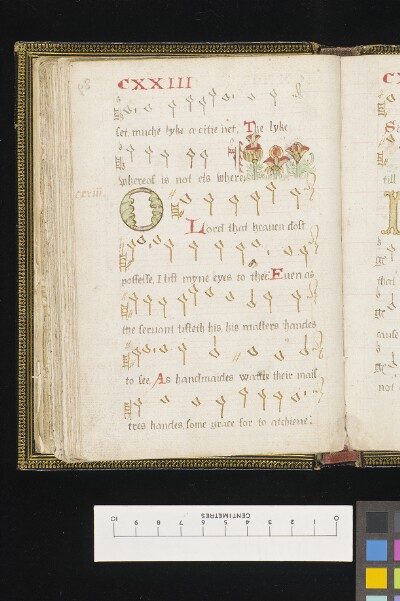 CXXIII
set muche lyke a citie net, The lyke
whereof is not els where
cxxiii
O Lord that heauen dost
possesse, I lift myne eyes to thee: Euen as
the seruant lifteth his, his masters handes
to see As handmaides watche their mais
tres handes, some grace for to atchieue:
C
S
till
that
cause
not
CENTIMETRES
10 9 8 7 6 5 4 3 2 1 0